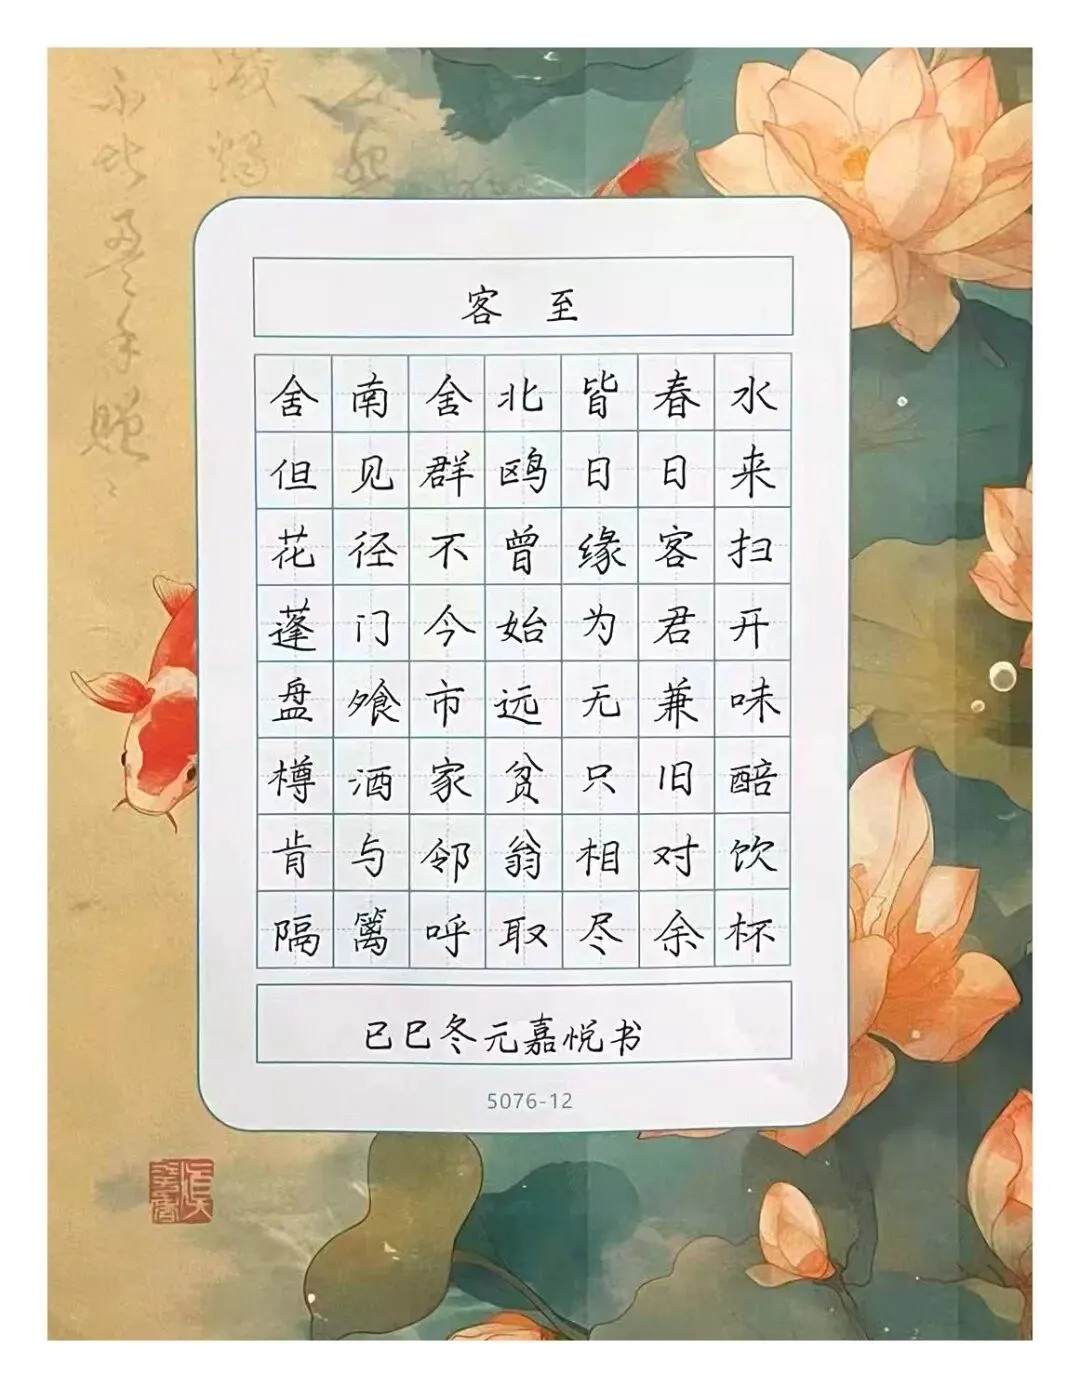 客 至
舍南舍北皆春水
但见群鸥日日来
花径不曾缘客扫
蓬门今始为君开
盘飧市远无兼味
樽酒家贫只旧醅
肯与邻翁相对饮
隔篱呼取尽余杯
已巳冬元嘉悦书
5076-12